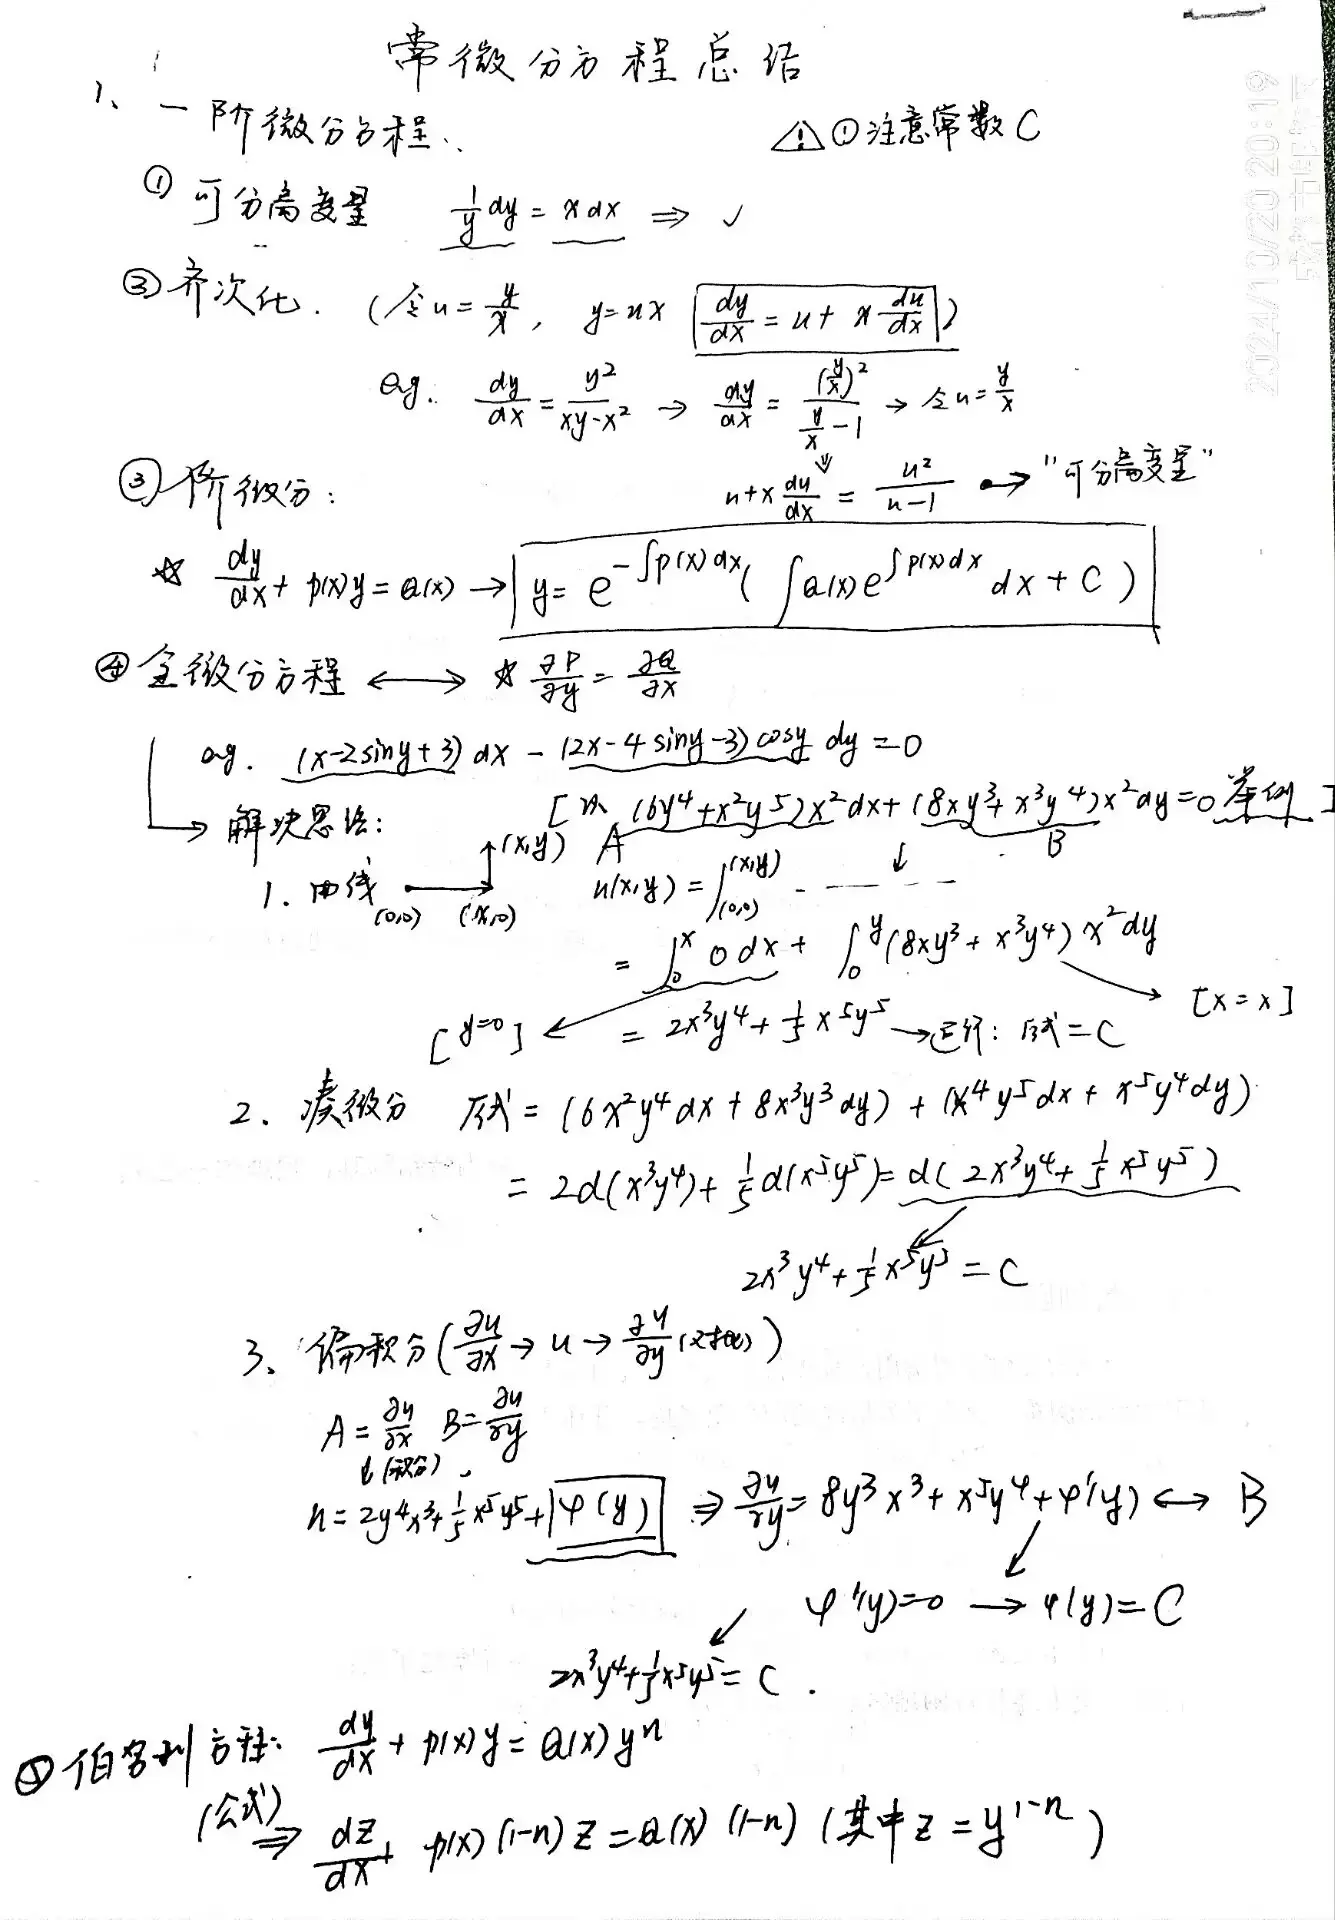 常微分方程总结
1、一阶微分方程..
⚠①注意常数C
① 可分离变量 1/y dy = x dx ⇒ ✓
② 齐次化. (令u = y/x, y=ux dy/dx = u + x du/dx)
eg. dy/dx = y²/(xy-x²) → dy/dx = (y/x)²/(y/x - 1) → 令u = y/x
u+x du/dx = u²/(u-1) → "可分离变量"
③ 阶微分:
☆ dy/dx + p(x)y = Q(x) → y = e^(-∫p(x)dx) ( ∫Q(x)e^(∫p(x)dx) dx + C )
④ 全微分方程 ⟷ ☆ ∂P/∂y = ∂Q/∂x
eg. (x-2siny+3)dx - (2x-4siny-3)cosy dy = 0
[以 (6y⁴+x²y⁵)x²dx + (8xy³+x³y⁴)x²dy = 0 举例]
A B
→ 解决思路:
1. 曲线 (0,0) → (x,0) ↑ (x,y) u(x,y) = ∫_(0,0)^(x,y) - — — — —
= ∫_0^x 0 dx + ∫_0^y (8xy³ + x³y⁴) x²dy
[y=0] [x=x]
= 2x³y⁴ + 1/5 x⁵y⁵ → 运行: 原式 = C
2. 凑微分 原式 = (6x²y⁴dx + 8x³y³dy) + (x⁴y⁵dx + x⁵y⁴dy)
= 2d(x³y⁴) + 1/5 d(x⁵y⁵) = d( 2x³y⁴ + 1/5 x⁵y⁵ )
2x³y⁴ + 1/5 x⁵y⁵ = C
3、偏积分 ( ∂u/∂x → u → ∂u/∂y )
A = ∂u/∂x B = ∂u/∂y
↓(积分)
u = 2y⁴x³ + 1/5 x⁵y⁵ + φ(y) ⇒ ∂u/∂y = 8y³x³ + x⁵y⁴ + φ'(y) ⟷ B
φ'(y)=0 → φ(y)=C
2x³y⁴ + 1/5 x⁵y⁵ = C .
⑤ 伯努利方程: dy/dx + p(x)y = Q(x)yⁿ
(公式)
⇒ dz/dx + p(x)(1-n)z = Q(x)(1-n) (其中z = y^(1-n))
2024/10/20 20:19